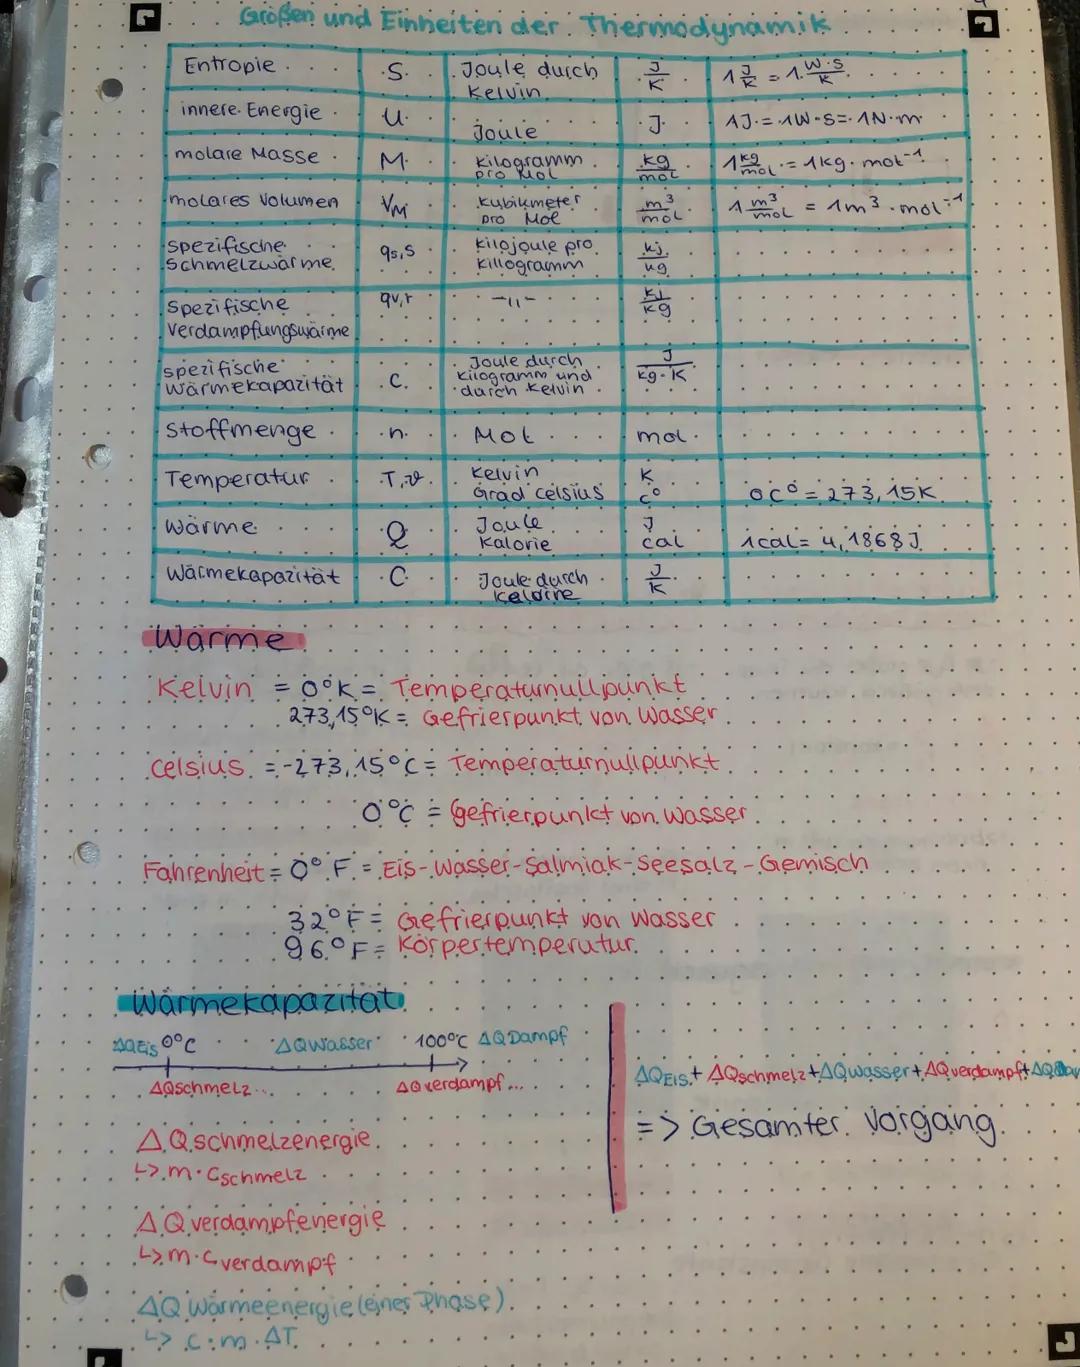 Größen und Einheiten der Thermodynamik
Entropie S Joule durch Kelvin J/K 1 J/K = 1 W·s/K
innere Energie U Joule J 1J = 1W·s = 1N·m
molare Masse M Kilogramm pro Mol kg/mol 1 kg/mol = 1kg·mol⁻¹
molares Volumen VM Kubikmeter pro Mol m³/mol 1 m³/mol = 1m³·mol⁻¹
spezifische Schmelzwärme qs,s Kilojoule pro Killogramm kj/kg
spezifische Verdampfungswärme qv,r -"- kj/kg
spezifische Wärmekapazität c Joule durch Kilogramm und durch Kelvin J/kg·K
Stoffmenge n Mol mol
Temperatur T,ϑ Kelvin Grad Celsius K C° 0C° = 273,15K
Wärme Q Joule Kalorie J cal 1cal = 4,1868J
Wärmekapazität C Joule durch J/K
Wärme
Kelvin = 0°K = Temperaturnullpunkt
273,15°K = Gefrierpunkt von Wasser
Celsius = -273,15°C = Temperaturnullpunkt
0°C = Gefrierpunkt von Wasser
Fahrenheit = 0°F = Eis-Wasser-Salmiak-Seesalz-Gemisch
32°F = Gefrierpunkt von Wasser
96°F = Körpertemperatur
Wärmekapazität
ΔQEis 0°C ΔQWasser 100°C ΔQDampf
ΔQschmelz... ΔQverdampf...
ΔQEis + ΔQschmelz + ΔQwasser + ΔQverdampf + ΔQ
=> Gesamter Vorgang
ΔQ schmelzenergie
↳ m·Cschmelz
ΔQ verdampfenergie
↳ m·Cverdampf
ΔQ Wärmeenergie (einer Phase)
↳ c·m·ΔT